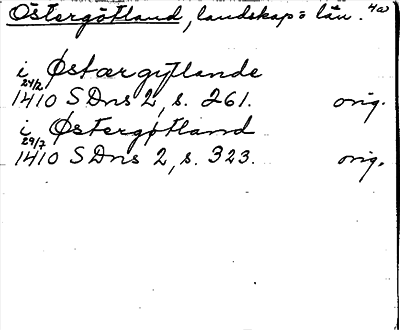 Östergötland, landskap = län. 4a)
i Østærgøtlande
24/2
1410 SDns 2, s. 261. orig.
i Østergøtland
29/7
1410 SDns 2, s. 323. orig.